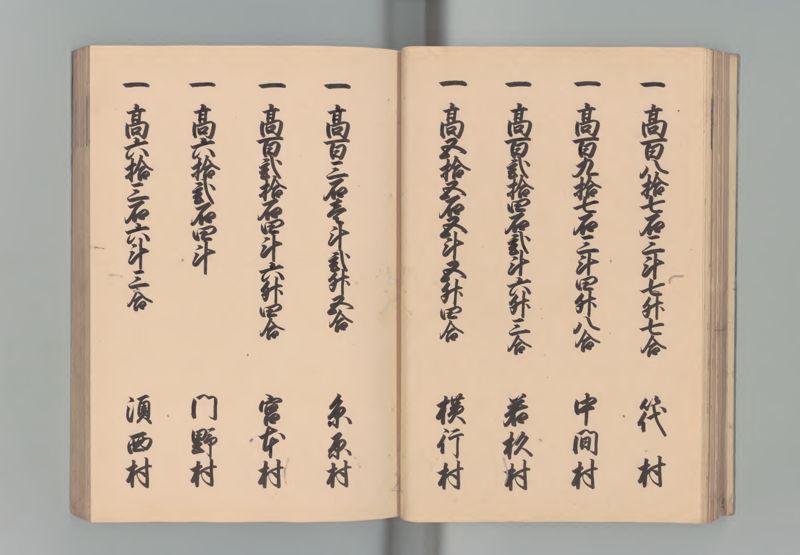 一 高百八拾七石三斗七升七合 筏村
一 高百九拾七石三斗四升八合 中間村
一 高百弐拾四石弐斗六升三合 若杦村
一 高五拾五石五斗五升四合 横行村
一 高百三石壱斗弐升五合 糸原村
一 高百弐拾石四斗六升四合 宮本村
一 高六拾弐石四斗 門野村
一 高六拾三石六斗三合 須西村